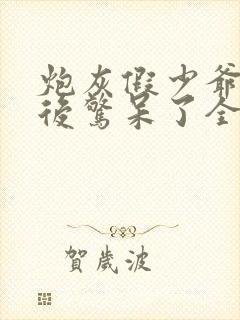 炮灰假少爺
後驚呆了全
賀歲波